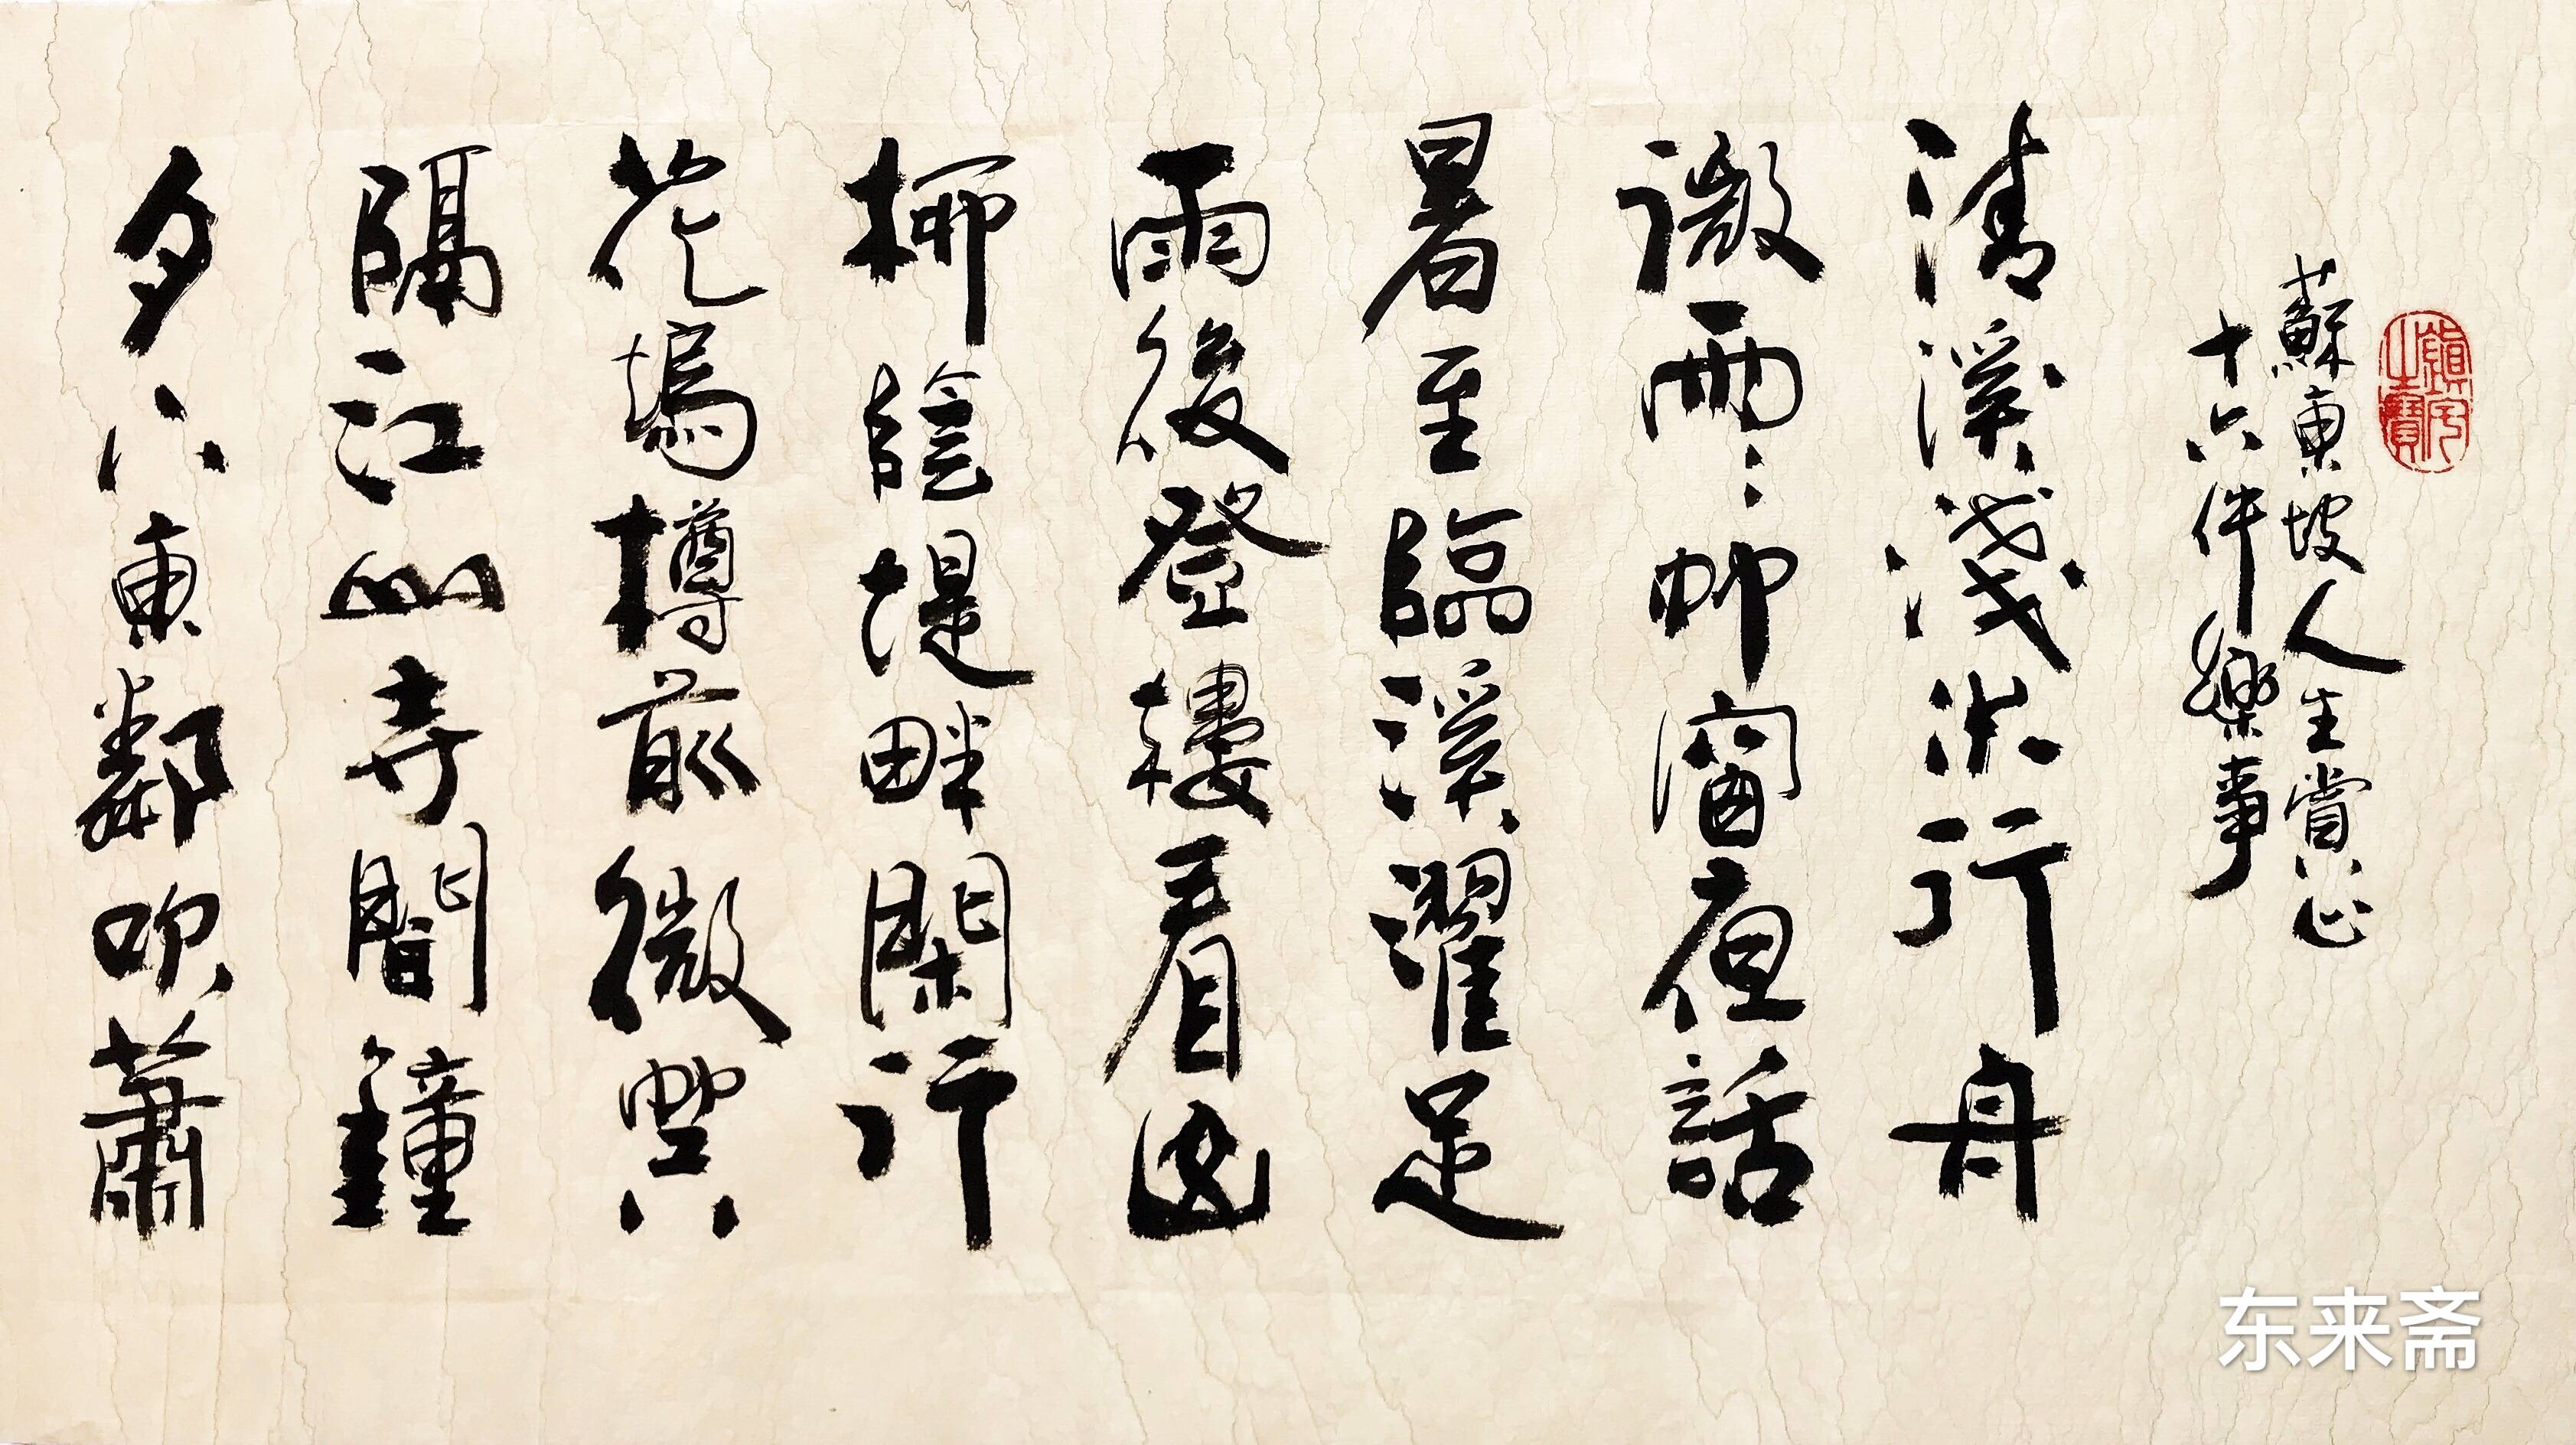 蘇東坡人生賞心
十六件樂事
清溪淺水行舟
微雨竹窗夜話
暑至臨溪濯足
雨後登樓看山
柳陰堤畔閑行
花塢樽前微興
隔江山寺聞鐘
月下東鄰吹蕭
东来斋